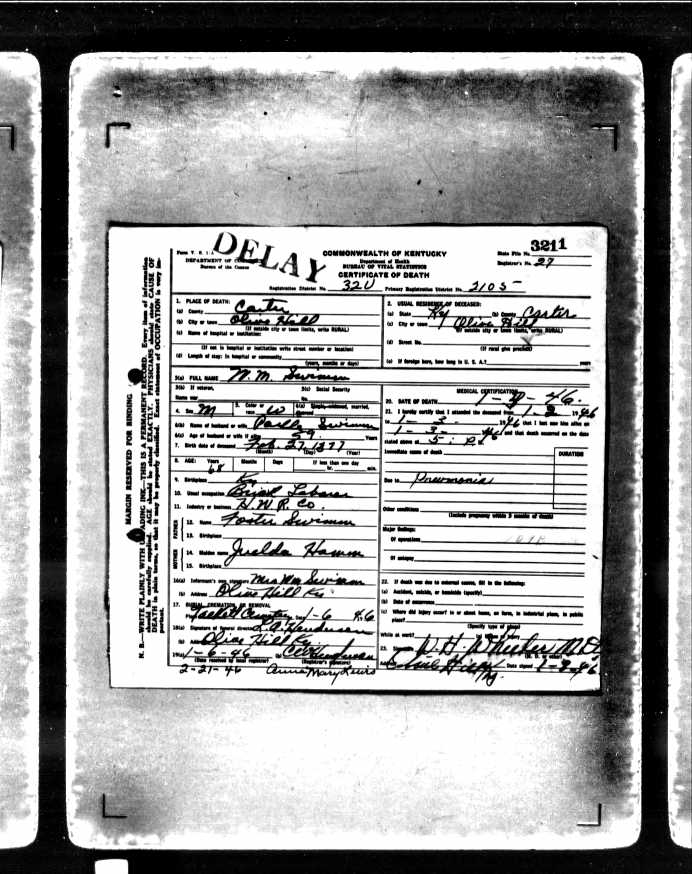 DELAY
3211
Form V. S. 1-A
DEPARTMENT OF C
Bureau of the Census
COMMONWEALTH OF KENTUCKY
Department of Health
BUREAU OF VITAL STATISTICS
CERTIFICATE OF DEATH
State File No.
Registrar's No. 27
Registration District No. 320 Primary Registration District No. 2105
1. PLACE OF DEATH:
(a) County Carter
(b) City or town Olive Hill
(If outside city or town limits, write RURAL)
(c) Name of hospital or institution:
(If not in hospital or institution write street number or location)
(d) Length of stay: In hospital or community
(years, months or days)
2. USUAL RESIDENCE OF DECEASED:
(a) State Ky (b) County Carter
(c) City or town Olive Hill
(If outside city or town limits, write RURAL)
(d) Street No.
(If rural give precinct)
(e) If foreign born, how long in U. S. A.? years
3(a) FULL NAME W. M. Swimm
3(b) If veteran, name war
3(c) Social Security No.
4. Sex M 5. Color or race W 6(a) Single, widowed, married, divorced
6(b) Name of husband or wife Swimm
6(c) Age of husband or wife if alive 59 Years
7. Birth date of deceased Feb. 27, 1877
(Month) (Day) (Year)
8. AGE: Years Months Days If less than one day
68 hr. min.
9. Birthplace Ky
10. Usual occupation Brick Laborer
11. Industry or business H. W. R. Co.
FATHER
12. Name Foster Swimm
13. Birthplace
MOTHER
14. Maiden name Hamm
15. Birthplace
16(a) Informant's own signature Mrs Wm Swimm
(b) Address Olive Hill Ky
17. BURIAL, CREMATION OR REMOVAL
Tackett Cemetery 1-6 46
18(a) Signature of funeral director L. A. Henderson
(b) Address Olive Hill Ky.
19(a) 1-6-46
(Date received by local registrar) (Registrar's signature)
2-21-46 Anna Mary Lewis
MEDICAL CERTIFICATION
20. DATE OF DEATH 1-3-46
21. I hereby certify that I attended the deceased from 1-2 1946
to 1-3- 1946 that I last saw him alive on
1-3-46 and that death occurred on the date
stated above at 5: P.
Immediate cause of death
DURATION
Due to Pneumonia
Other conditions
(Include pregnancy within 3 months of death)
Major findings:
Of operations
Of autopsy
22. If death was due to external causes, fill in the following:
(a) Accident, suicide, or homicide (specify)
(b) Date of occurrence
(c) Where did injury occur? in or about home, on farm, in industrial place, in public
place?
(Specify type of place)
While at work?
23. Signature M.D.
Address Olive Hill Ky. Date signed 1-9-46
MARGIN RESERVED FOR BINDING
N. B.—WRITE PLAINLY WITH UNFADING INK—THIS IS A PERMANENT RECORD. Every item of information
should be carefully supplied. AGE should be stated EXACTLY. PHYSICIANS should state CAUSE OF
DEATH in plain terms, so that it may be properly classified. Exact statement of OCCUPATION is very im-
portant.